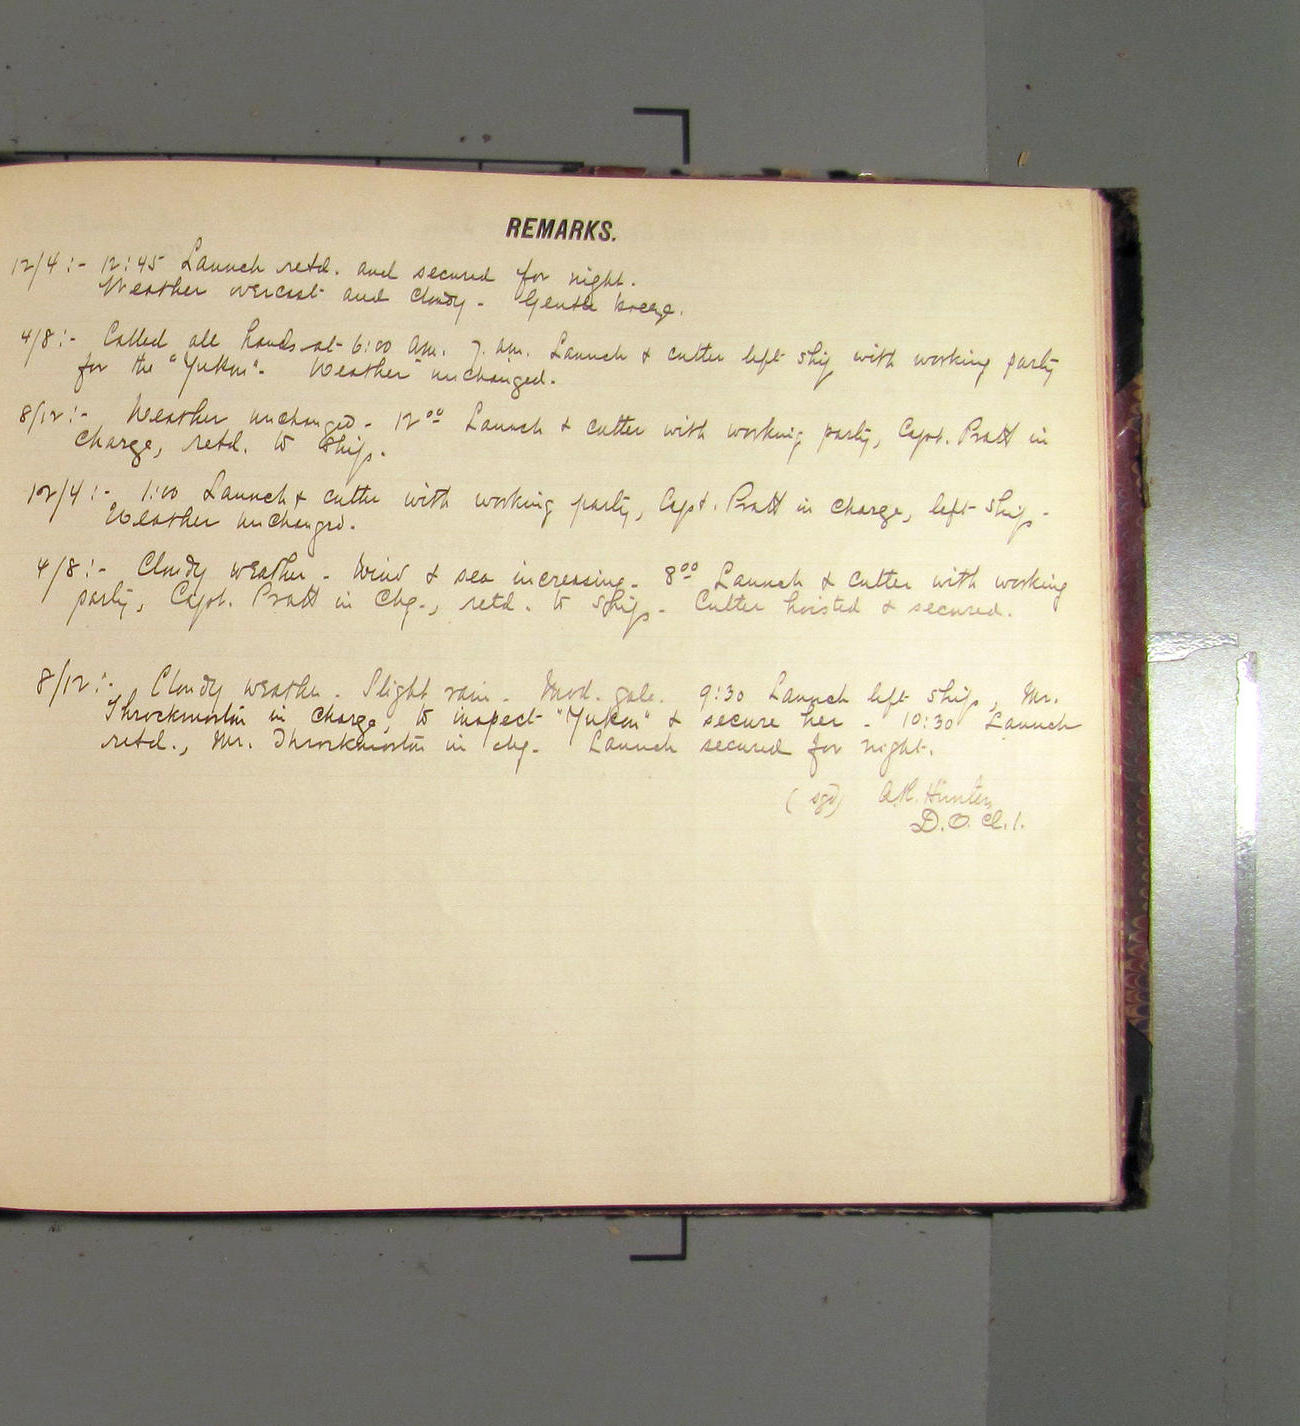 REMARKS.
12/4:- 12:45 Launch retd. and secured for night.
Weather overcast and cloudy - Gentle breeze.
4/8:- Called all hands at 6:00 am. 7. am. Launch & cutter left ship with working party
for the "Yukon". Weather unchanged.
8/12:- Weather unchanged - 12⁰⁰ Launch & cutter with working party, Capt. Pratt in
charge, retd. to ship.
12/4:- 1:00 Launch & cutter with working party, Capt. Pratt in charge, left ship -
Weather unchanged.
4/8:- Cloudy weather - Wind & sea increasing - 8⁰⁰ Launch & cutter with working
party, Capt. Pratt in Chg., retd. to ship - Cutter hoisted & secured.
8/12:- Cloudy weather - Slight rain - Mod. gale. 9:30 Launch left ship, Mr.
Throckmorton in charge, to inspect "Yukon" & secure her - 10:30 Launch
retd., Mr. Throckmorton in chg. Launch secured for night.
(sgd) Hunter
D.O. Cl. 1.